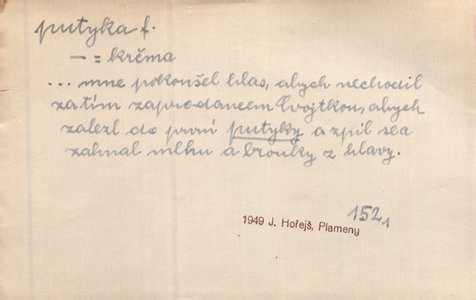 putyka f.
— = krčma
... mne pokoušel hlas, abych nechodil
za tím zaprodancem Cvojtkou, abych
zalezl do první putyky a zpil se a
zahnal mlhu a brouky z hlavy.
152₁
1949 J. Hořejš, Plameny